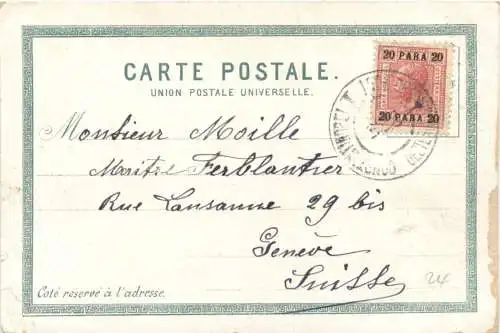 CARTE POSTALE.
UNION POSTALE UNIVERSELLE.
20 PARA 20
20 PARA 20
Monsieur Moille
Maître Ferblantier
Rue Lausanne 29 bis
Genève
Suisse
Coté reservé à l'adresse.
24